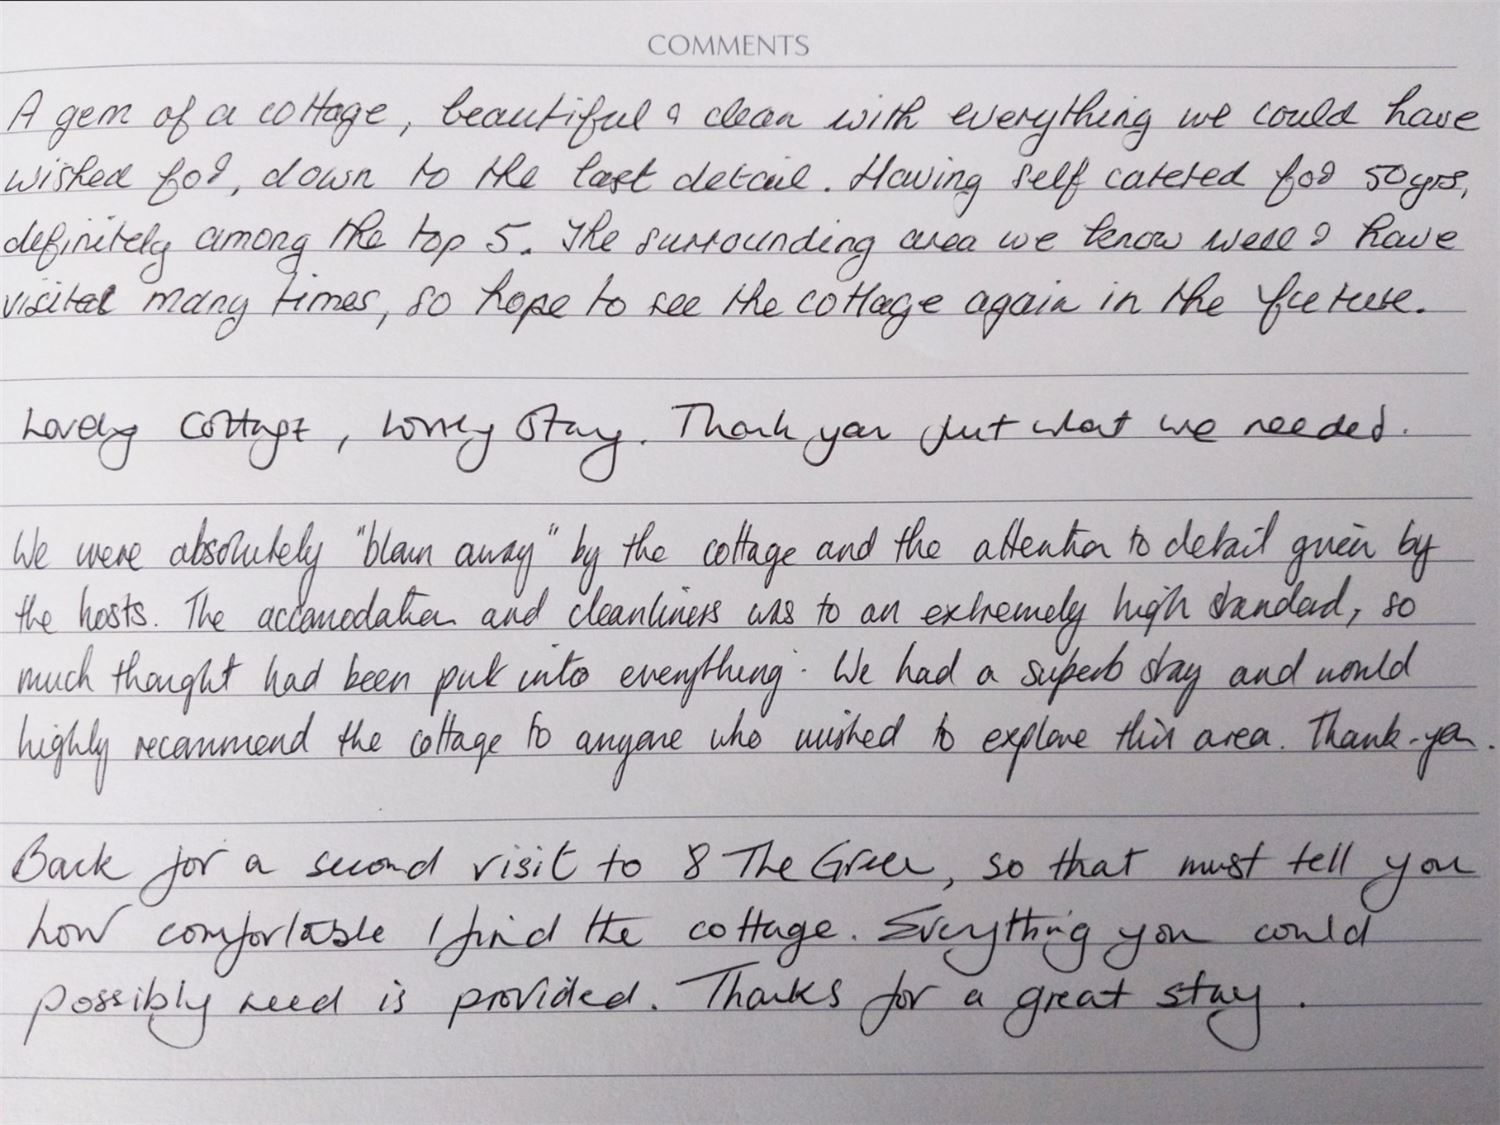 COMMENTS
A gem of a cottage, beautiful & clean with everything we could have
wished for, down to the last detail. Having self catered for 50yrs,
definitely among the top 5. The surrounding area we know well & have
visited many times, so hope to see the cottage again in the future.
Lovely Cottage, Lovely Stay. Thank you just what we needed.
We were absolutely "blown away" by the cottage and the attention to detail given by
the hosts. The accomodation and cleanliness was to an extremely high standard, so
much thought had been put into everything. We had a superb stay and would
highly recommend the cottage to anyone who wished to explore this area. Thank-you.
Back for a second visit to 8 The Green, so that must tell you
how comfortable I find the cottage. Everything you could
possibly need is provided. Thanks for a great stay.